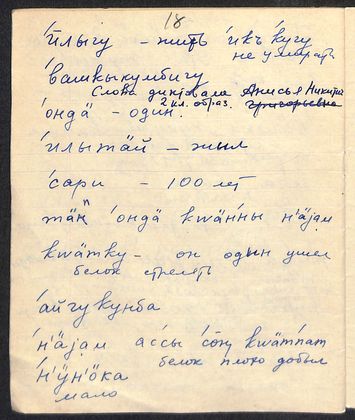 18
'илыгу – жить 'икъ 'кугу
не умирать
'ваткыкумбигу
Слова диктовала Анисья Никити
2 кл. образ. Григорьевна
'ондӓ – один.
'илытӓй – жыл
'сари – 100 лет
тӓӈ 'ондӓ кwӓнны н'ӓjам
кwӓтку – он один ушел
белок стрелять
'айгукунба
'н'ӓjам ассы 'соӈ кwӓтпат
белок плохо добыл
'н'ӱн'ӧка
мало